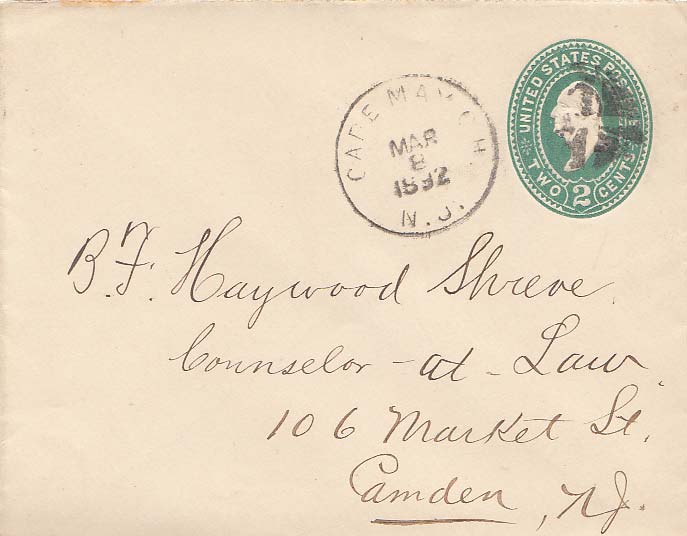 UNITED STATES POS
TWO 2 CENTS
CAPE MAY C.H.
MAR
8
1892
N.J.
B.F. Haywood Shreve.
Counselor-at-Law
106 Market St.
Camden, N.J.